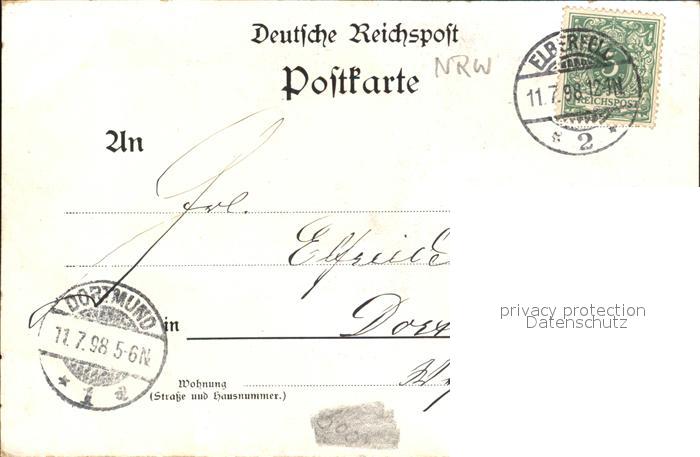 Deutsche Reichspost
NRW
Postkarte
ELBERFELD
11.7.98.12-1N.
* 2 *
5
REICHSPOST
An
Frl.
Elfriede
privacy protection
Datenschutz
DORTMUND
11.7.98 5-6N.
* 1 a
in
Wohnung
(Straße und Hausnummer.)